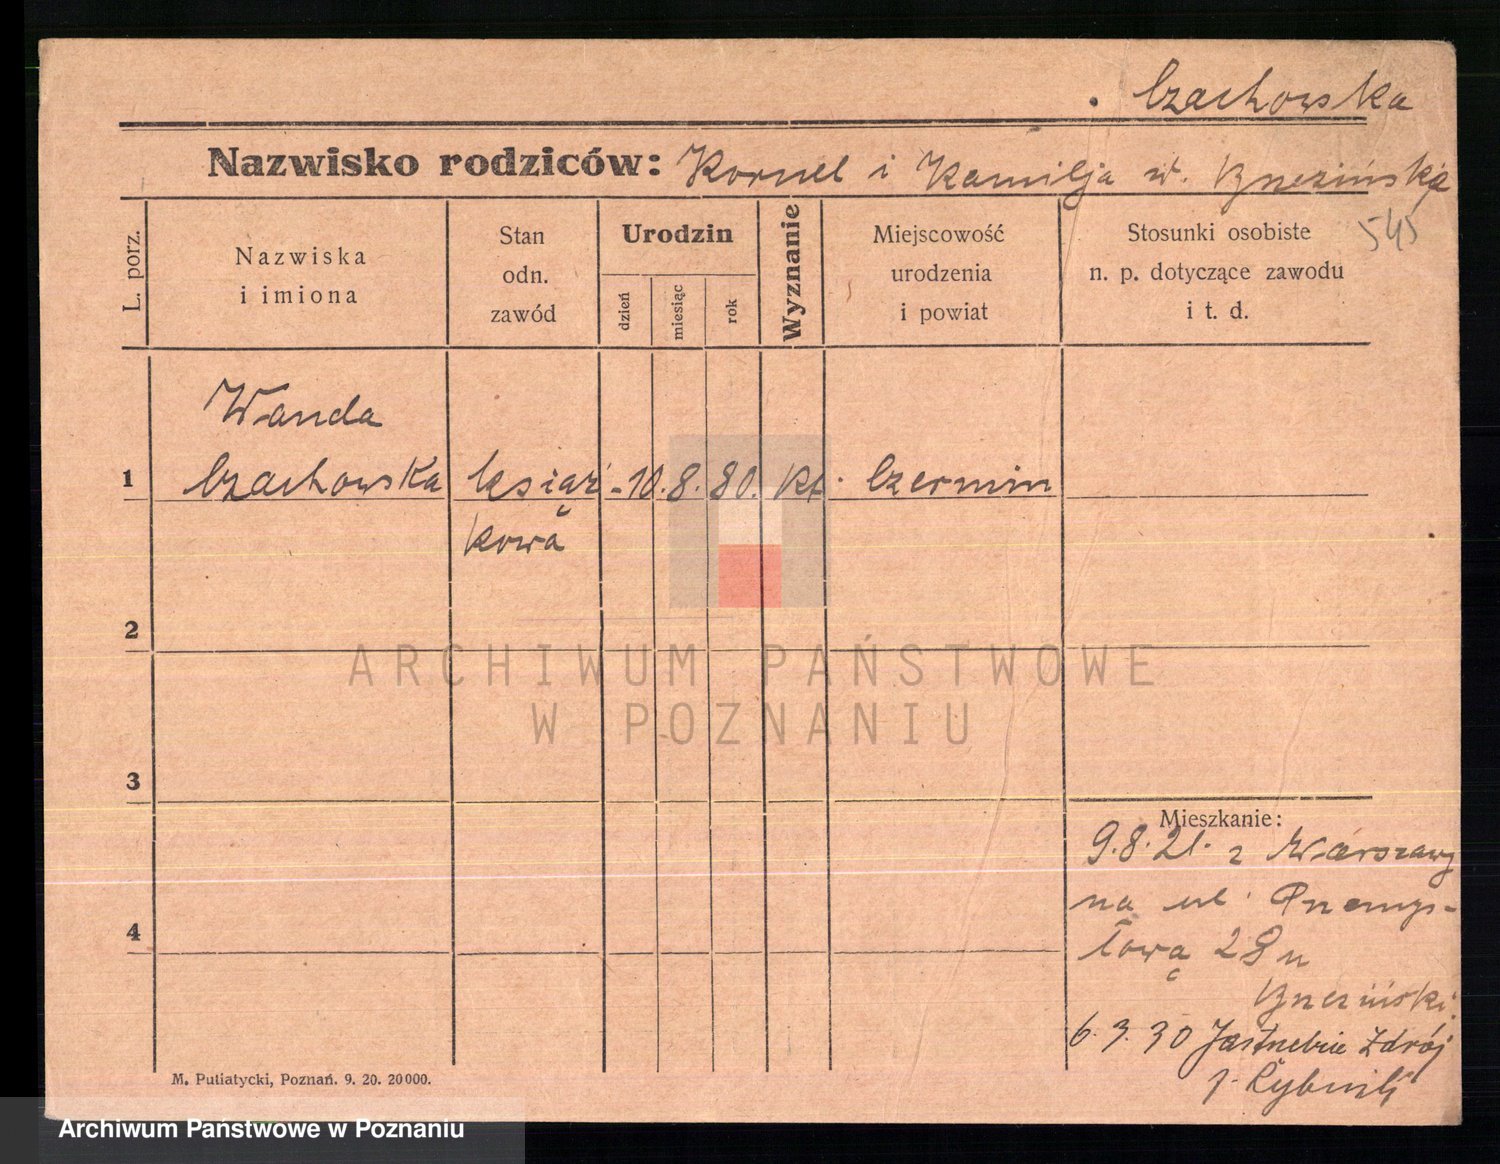 Czachowska
Nazwisko rodziców: Kornel i Kamilja w. Brzezińska
545
L. porz.
Nazwiska
i imiona
Stan
odn.
zawód
Urodzin
dzień
miesiąc
rok
Wyznanie
Miejscowość
urodzenia
i powiat
Stosunki osobiste
n. p. dotyczące zawodu
i t. d.
Wanda
1 Czachowska - 10. 8. 80. kt. Czermin
kowa
2
ARCHIWUM PAŃSTWOWE
W POZNANIU
3
Mieszkanie:
9.8.21. z Warszawy
na ul. Przemys-
łową 28 u
Brzeziński.
4
6.3.30 Jastrzębie Zdrój
p. Rybnik
M. Putiatycki, Poznań. 9. 20. 20000.
Archiwum Państwowe w Poznaniu